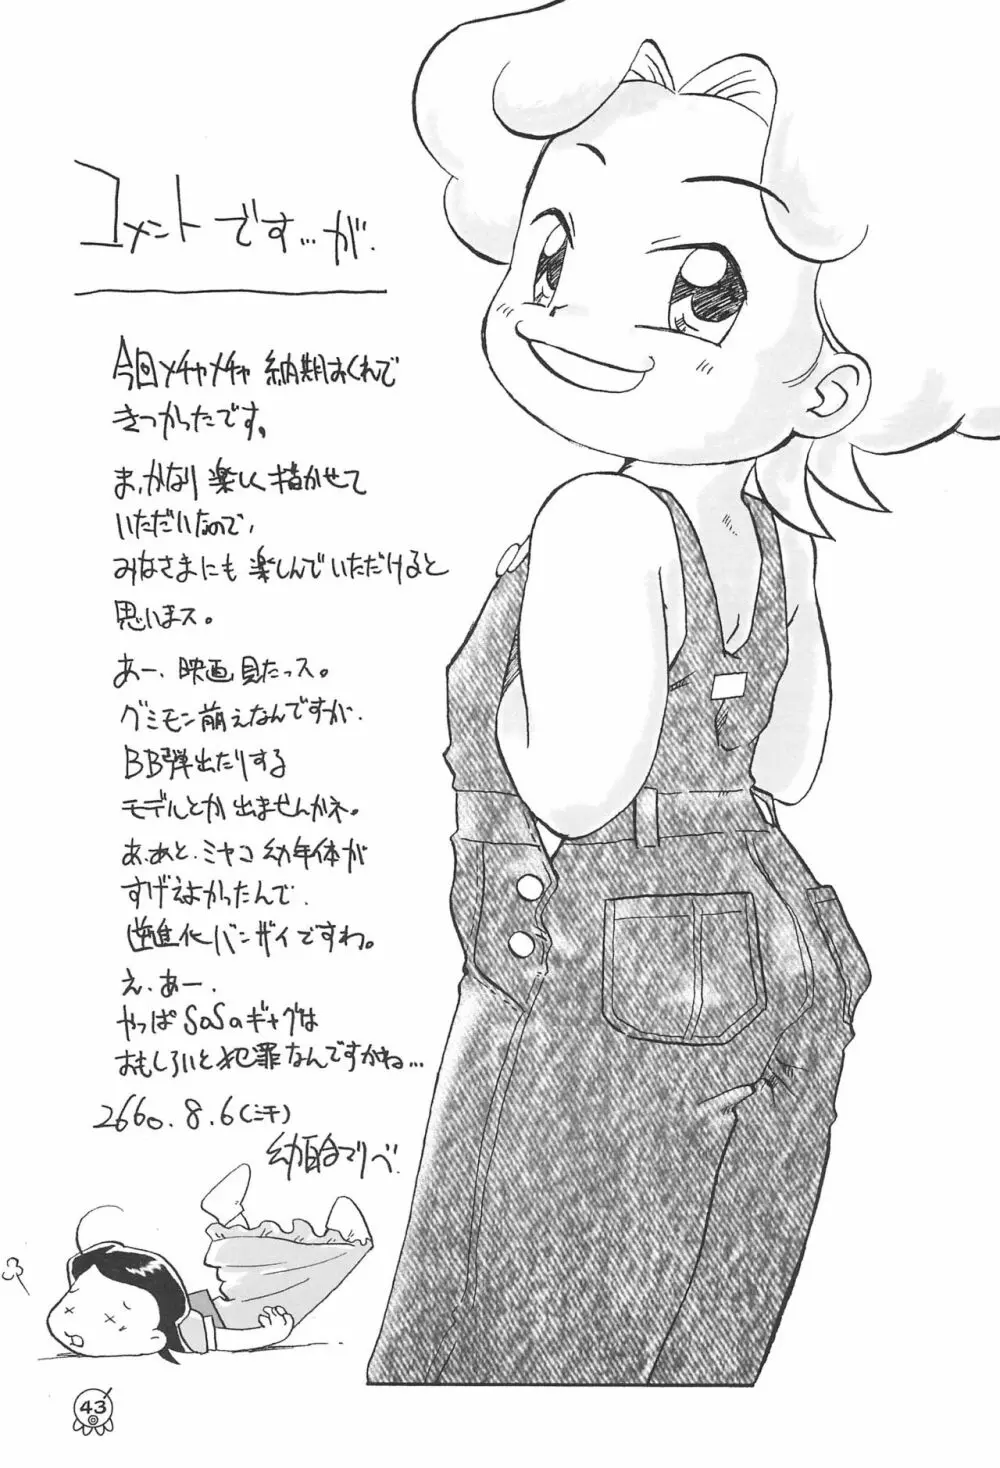 コメントです…が.
今回メチャメチャ 納期おくれで
きつかったです。
ま、かなり 楽しく描かせて
いただいたので、
みなさまにも 楽しんでいただけると
思いまス。
あー、映画見たっス。
グミモン萌えなんですが、
BB弾出たりする
モデルとか 出ませんかネ。
あ、あと、ミヤコ 幼年体が
すげえよかったんで、
逆進化バンザイですわ。
え、あー、
やっぱSaSaギャグは
おもしろいと犯罪なんですかね…
2000.8.6(汗)
43